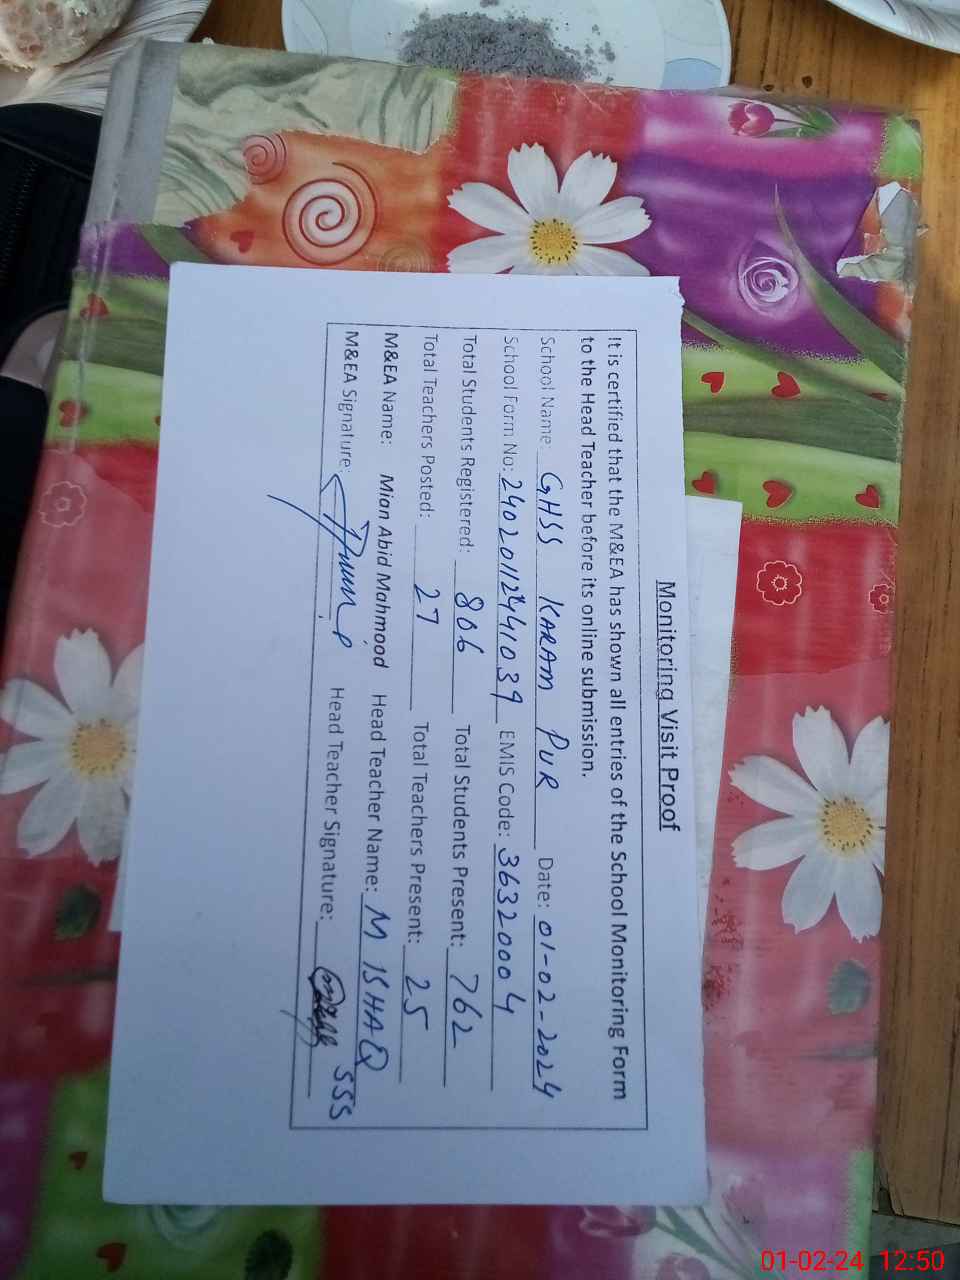 Monitoring Visit Proof
It is certified that the M&EA has shown all entries of the School Monitoring Form
to the Head Teacher before its online submission.
School Name: GHSS KARAM PUR Date: 01-02-2024
School Form No: 24020112441039 EMIS Code: 36320004
Total Students Registered: 806 Total Students Present: 762
Total Teachers Posted: 27 Total Teachers Present: 25
M&EA Name: Mian Abid Mahmood Head Teacher Name: M ISHAQ SSS
M&EA Signature: Head Teacher Signature:
01-02-24 12:50